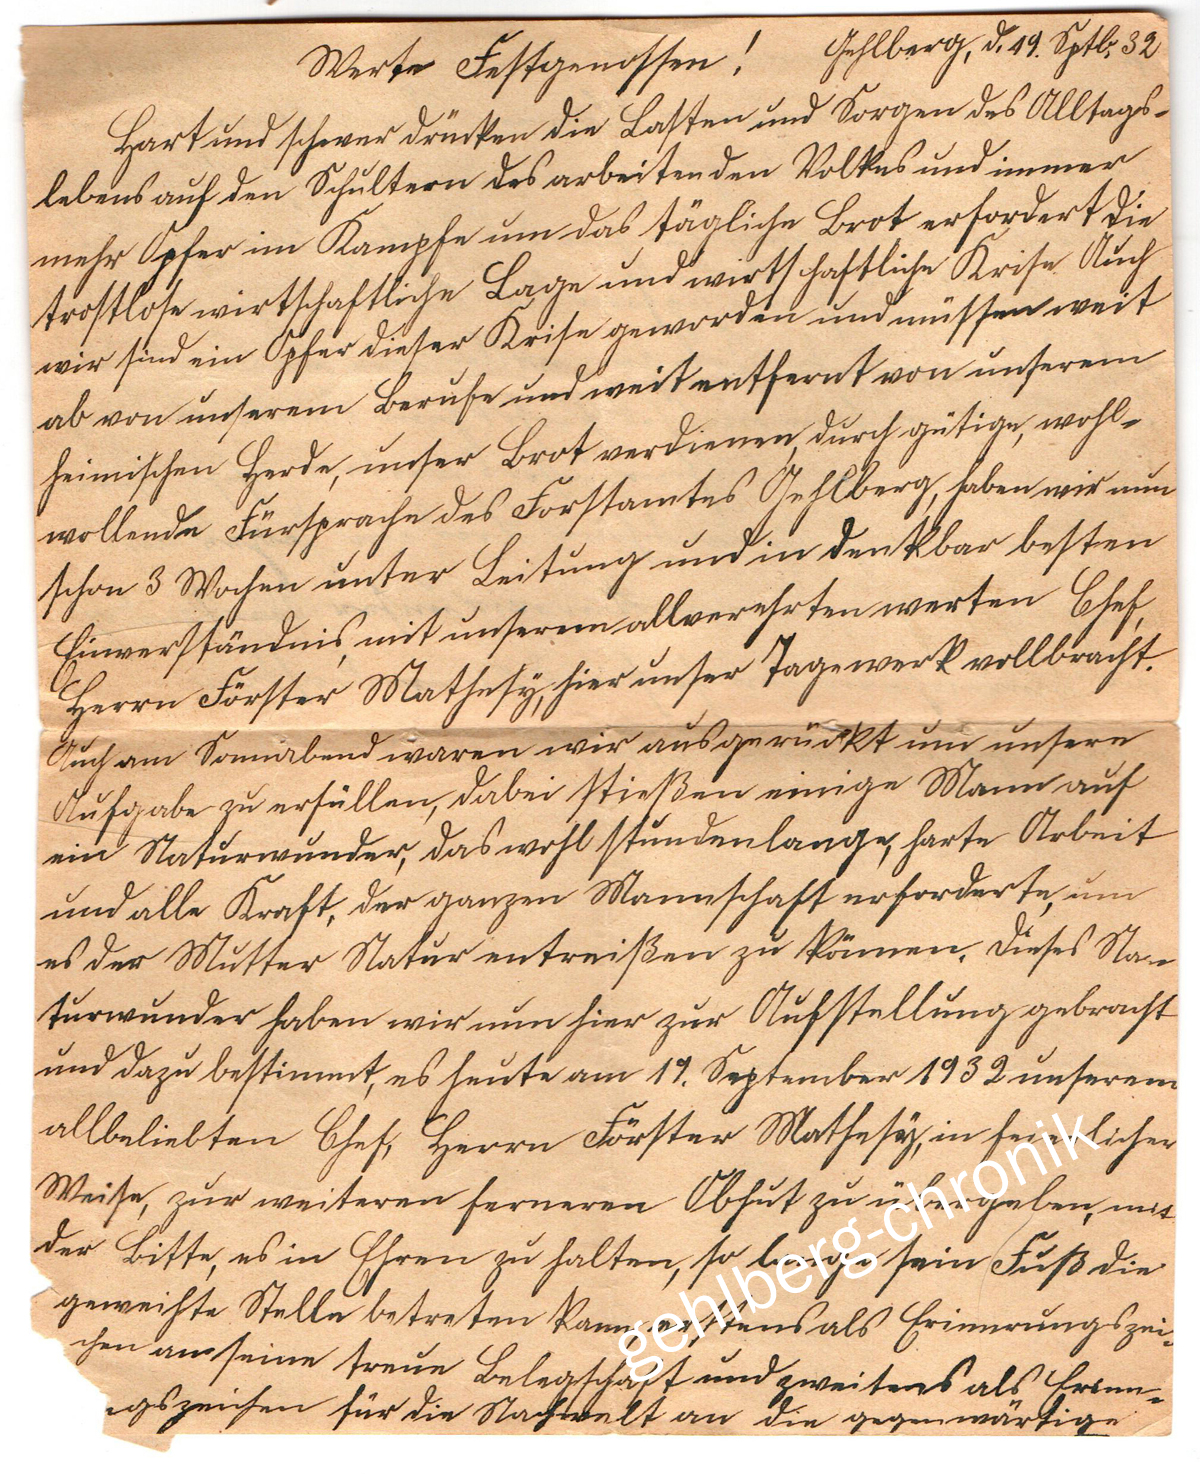 Gehlberg, d. 19. Sptb. 32
Werte Festgenossen!
Hart und schwer drücken die Lasten und Sorgen des Alltags-
lebens auf den Schultern des arbeitenden Volkes und immer
mehr Opfer im Kampfe um das tägliche Brot erfordert die
trostlose wirtschaftliche Lage und wirtschaftliche Krise Auch
wir sind ein Opfer dieser Krise geworden und müssen weit
ab von unserem Berufe und weit entfernt von unserem
heimischen Herde, unser Brot verdienen, durch gütige, wohl-
wollende Fürsprache des Forstamtes Gehlberg, haben wir nun
schon 3 Wochen unter Leitung und in denkbar besten
Einverständnis, mit unserem allverehrten werten Chef,
Herrn Förster Mathesÿ, hier unser Tagewerk vollbracht.
Auch am Sonnabend waren wir ausgerückt um unsere
Aufgabe zu erfüllen, dabei stießen einige Mann auf
ein Naturwunder, das wohl stundenlange, harte Arbeit
und alle Kraft, der ganzen Mannschaft erforderte, um
es der Mutter Natur entreißen zu können. Dieses Na-
turwunder haben wir nun hier zur Aufstellung gebracht
und dazu bestimmt, es heute am 19. September 1932 unserem
allbeliebten Chef, Herrn Förster Mathesÿ, in feierlicher
Weise, zur weiteren ferneren Obhut zu übergeben, mit
der Bitte, es in Ehren zu halten, so lange sein Fuß die
geweihte Stelle betreten kann, erstens als Erinnerungszei-
chen an seine treue Belegschaft und zweitens als Erinn-
ngszeichen für die Nachwelt an die gegenwärtige
gehlberg-chronik